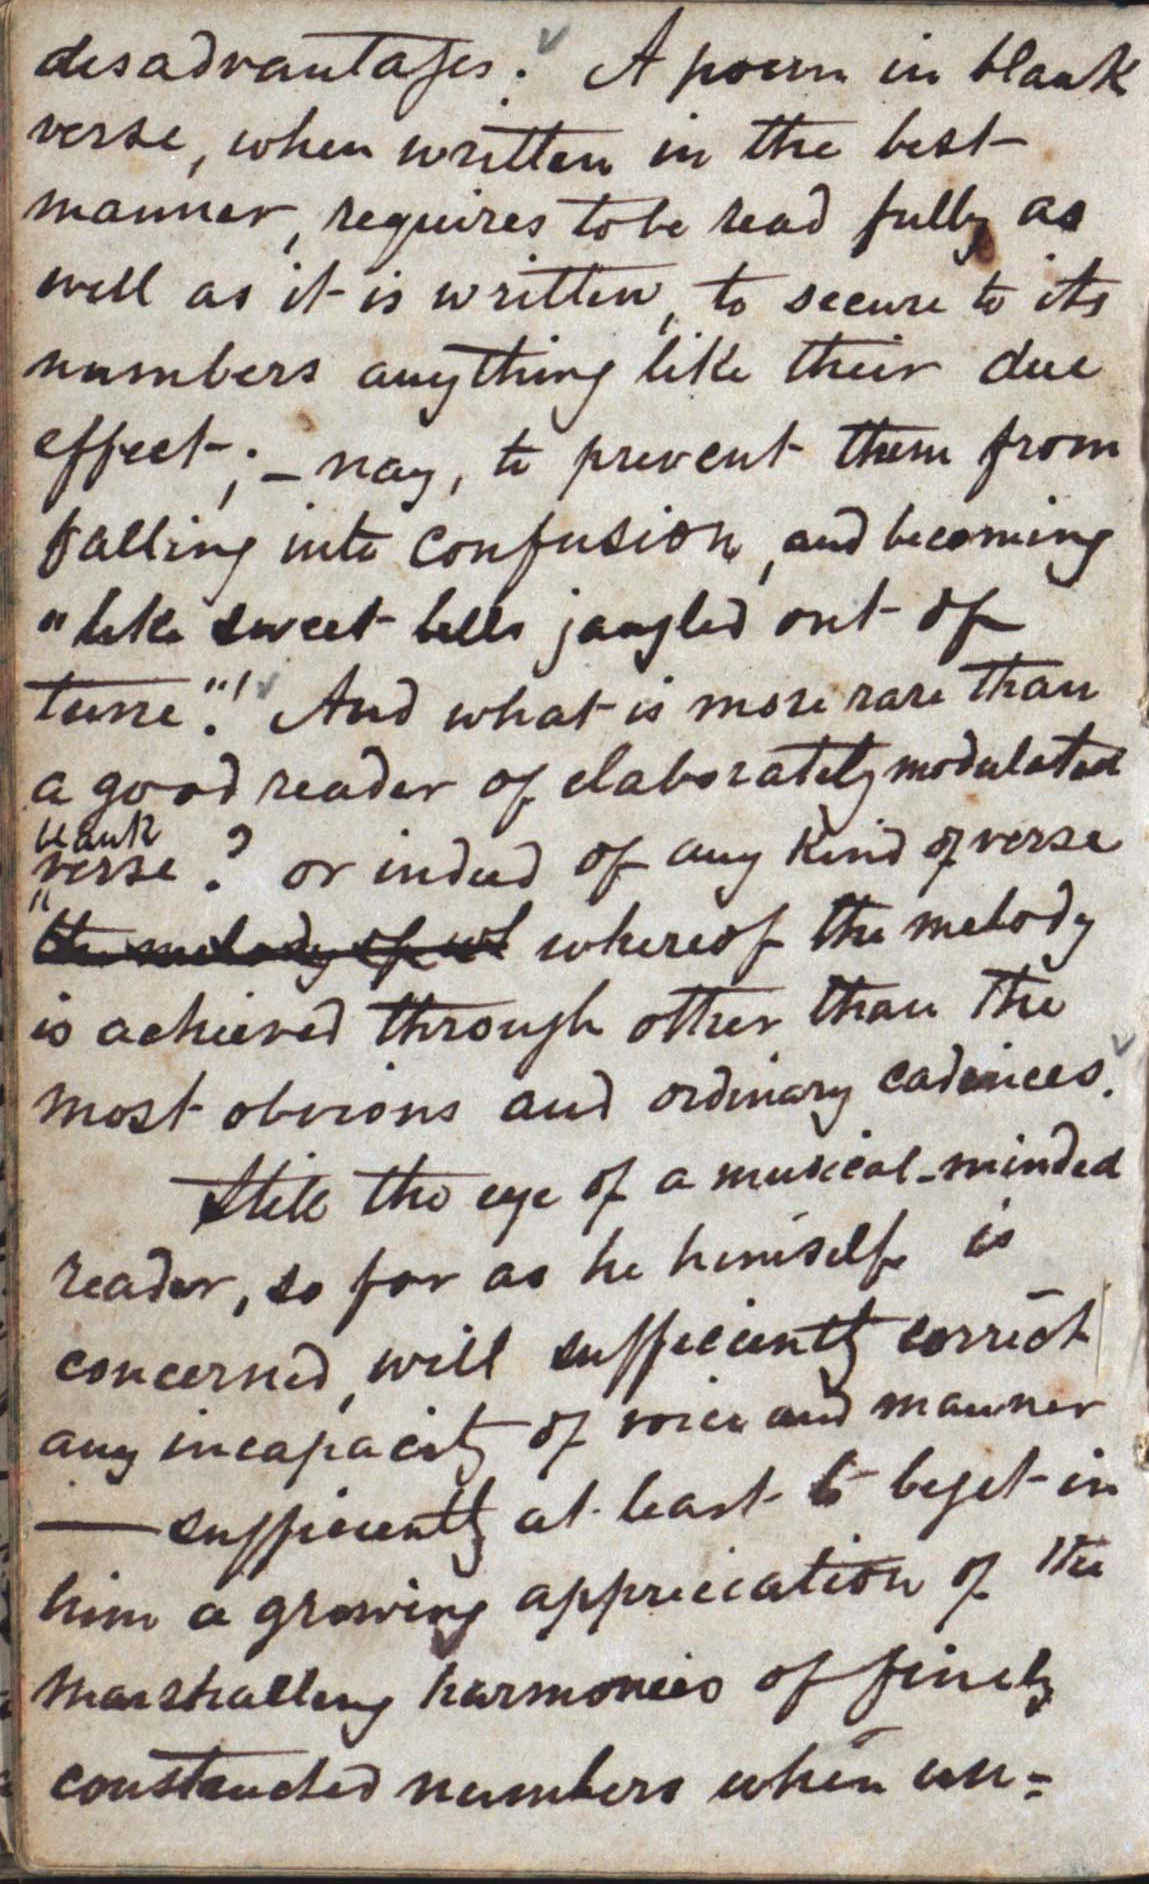 disadvantages. A poem in blank
verse, when written in the best
manner, requires to be read fully as
well as it is written, to secure to its
numbers anything like their due
effect; — nay, to prevent them from
falling into confusion, and becoming
"like sweet bells jangled out of
tune"! And what is more rare than
a good reader of elaborately modulated
blank
verse? or indeed of any kind of verse
the melody of wh whereof the melody
is achieved through other than the
most obvious and ordinary cadences.
Still the eye of a musical-minded
reader, so far as he himself is
concerned, will sufficiently correct
any incapacity of voice and manner
— sufficiently at least to beget in
him a growing appreciation of the
marshalling harmonies of finely
constructed numbers when un=